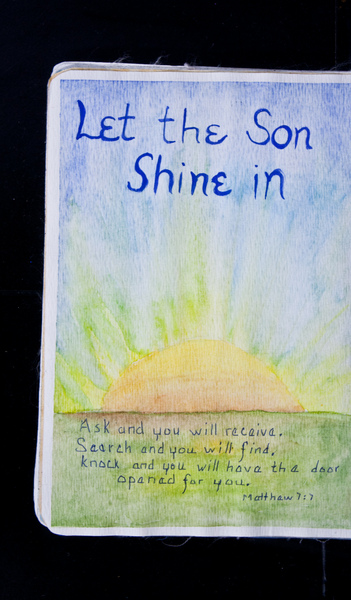 Let the Son
Shine in
Ask and you will receive.
Search and you will find,
knock and you will have the door
opened for you.
Matthew 7:7